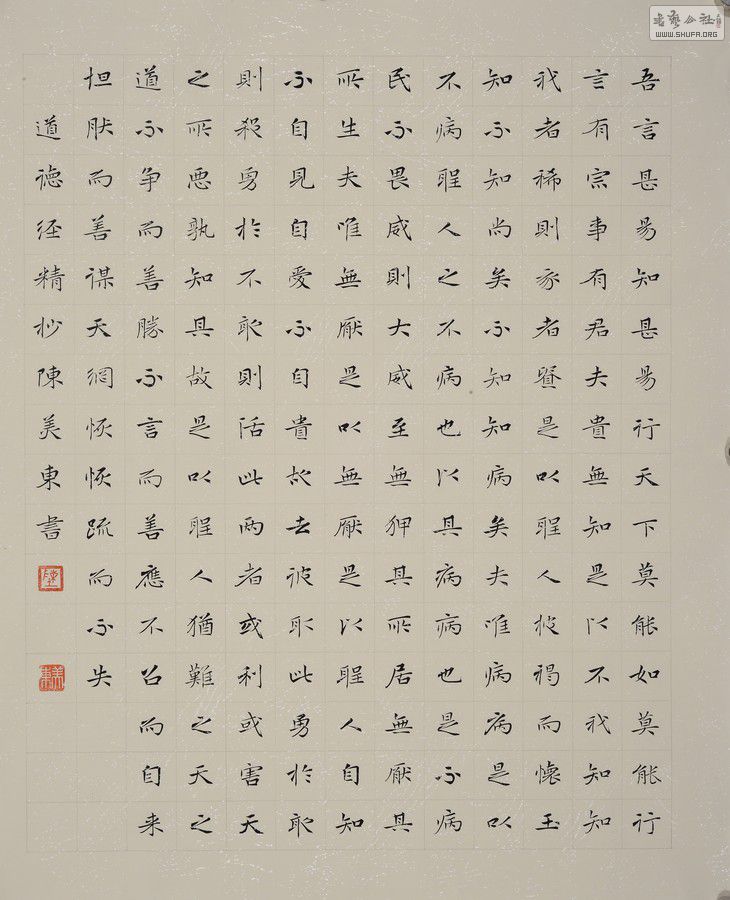 吾言甚易知甚易行天下莫能如莫能行
言有宗事有君夫貴無知是以不我知知
我者稀則者賢是以聖人披褐而懷玉
知不知尚矣不知知病矣夫唯病病是以
不病聖人之不病也以其病病也是不病
民不畏威則大威至無狎其所居無厭其
所生夫唯無厭是以無厭是以聖人自知
不自見自愛不自貴故去彼取此勇於敢
則殺勇於不敢則活此兩者或利或害天
之所惡孰知其故是以聖人猶難之天之
道不争而善勝不言而善應不召而自来
坦然而善謀天網恢恢疏而不失
道德经精抄陳美東書
陳
美東
WWW.SHUFA.ORG